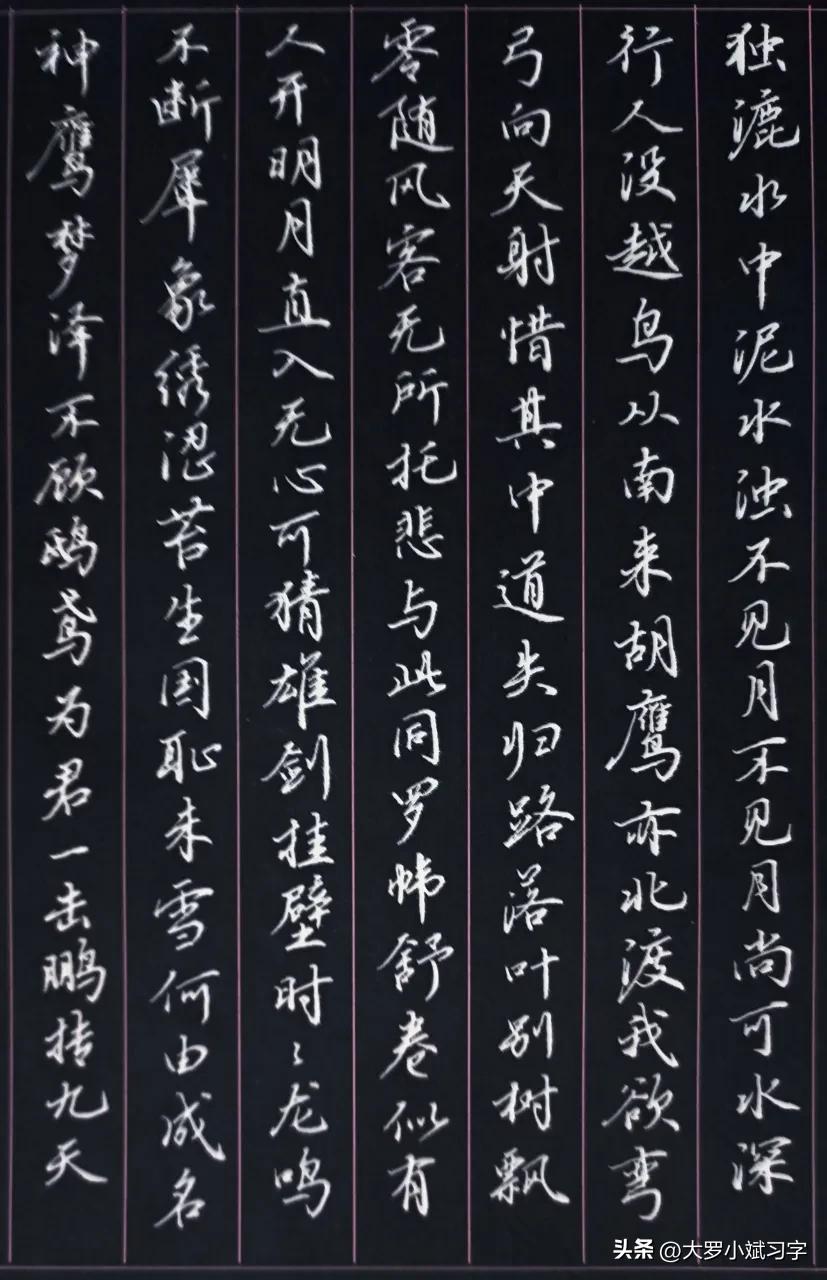 独漉水中泥水浊不见月不见月尚可水深
行人没越鸟从南来胡鹰亦北渡我欲弯
弓向天射惜其中道失归路落叶别树飘
零随风客无所托悲与此同罗帏舒卷似有
人开明月直入无心可猜雄剑挂壁时々龙鸣
不断犀象绣涩苔生国耻未雪何由成名
神鹰梦泽不顾鸱鸢为君一击鹏抟九天
头条 @大罗小斌习字